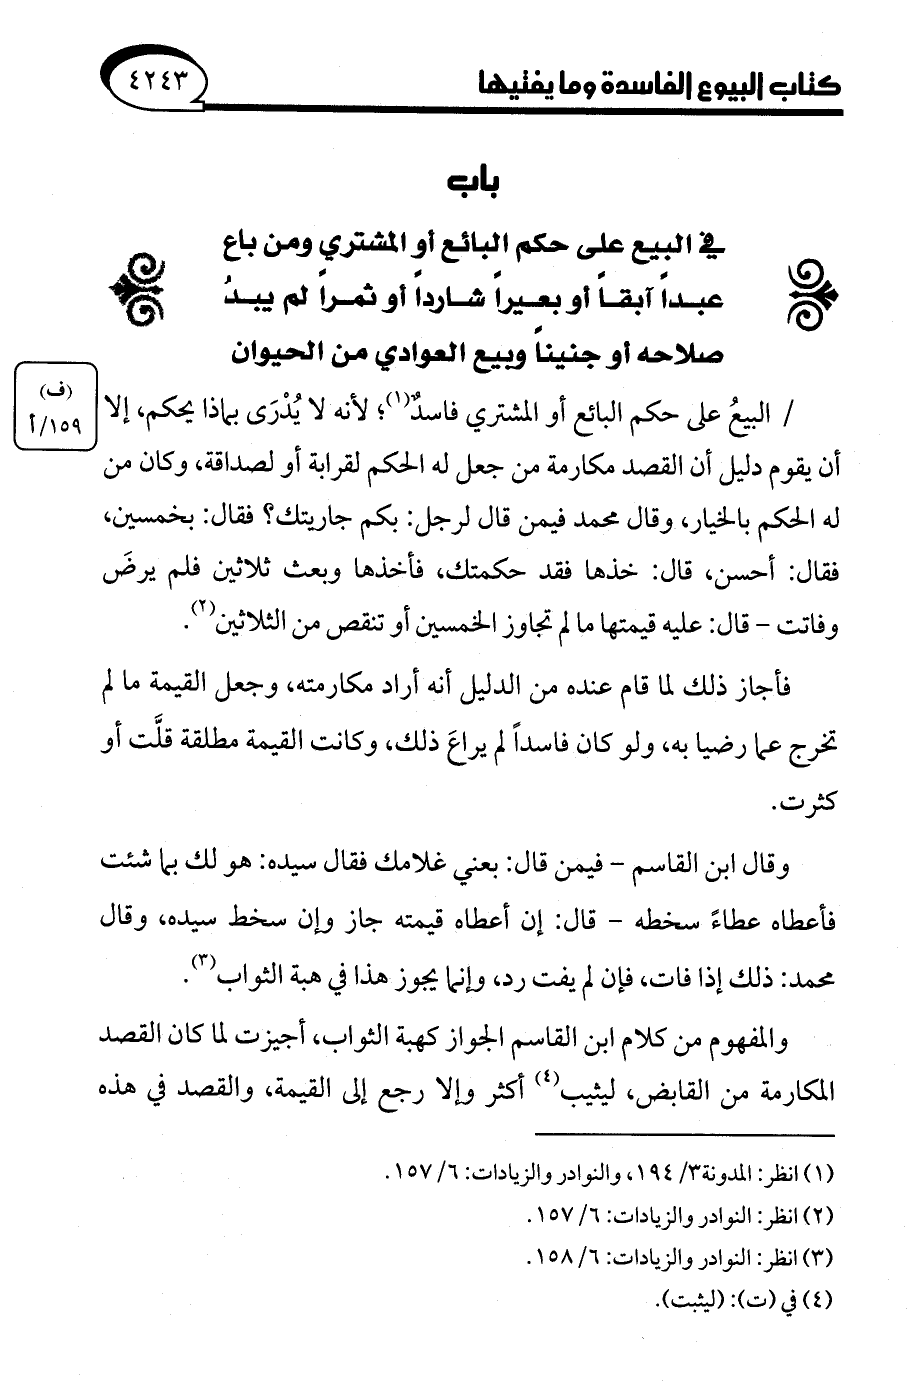 كتاب البيوع الفاسدة وما يفتيها
٤٢٤٣
باب
في البيع على حكم البائع أو المشتري ومن باع
عبداً آبقاً أو بعيراً شارداً أو ثمراً لم يبدُ
صلاحه أو جنيناً وبيع العوادي من الحيوان
(ف)
١٥٩/أ
/ البيعُ على حكم البائع أو المشتري فاسدٌ(١)؛ لأنه لا يُدْرَى بماذا يحكم، إلا
أن يقوم دليل أن القصد مكارمة من جعل له الحكم لقرابة أو لصداقة، وكان من
له الحكم بالخيار، وقال محمد فيمن قال لرجل: بكم جاريتك؟ فقال: بخمسين،
فقال: أحسن، قال: خذها فقد حكمتك، فأخذها وبعث ثلاثين فلم يرضَ
وفاتت – قال: عليه قيمتها ما لم تجاوز الخمسين أو تنقص من الثلاثين(٢).
فأجاز ذلك لما قام عنده من الدليل أنه أراد مكارمته، وجعل القيمة ما لم
تخرج عما رضيا به، ولو كان فاسداً لم يراعَ ذلك، وكانت القيمة مطلقة قلَّت أو
كثرت.
وقال ابن القاسم – فيمن قال: بعني غلامك فقال سيده: هو لك بما شئت
فأعطاه عطاءً سخطه – قال: إن أعطاه قيمته جاز وإن سخط سيده، وقال
محمد: ذلك إذا فات، فإن لم يفت رد، وإنما يجوز هذا في هبة الثواب(٣).
والمفهوم من كلام ابن القاسم الجواز كهبة الثواب، أجيزت لما كان القصد
المكارمة من القابض، ليثيب(٤) أكثر وإلا رجع إلى القيمة، والقصد في هذه
(١) انظر: المدونة٣/ ١٩٤، والنوادر والزيادات: ٦/ ١٥٧.
(٢) انظر: النوادر والزيادات: ٦/ ١٥٧.
(٣) انظر: النوادر والزيادات: ٦/ ١٥٨.
(٤) في (ت): (ليثبت).